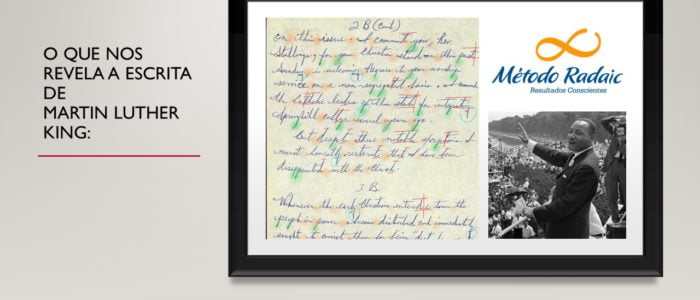 O QUE NOS
REVELA A ESCRITA
DE
MARTIN LUTHER
KING:
2 B (cont)
on this issue. I commend you, Rev.
Stallings, for your Christian stand on this past
Sunday, in welcoming Negroes to your worship
service on a non-segregated basis. I commend
the Catholic leaders of this state for integrating
Springhill college several years ago.
But despite these notable exceptions I
must honestly reiterate that I have been
disappointed with the church.
3 B
the early Christians entered a town the
people in power became disturbed and immediately
sought to convict them for being
Método Radaic
Resultados Conscientes